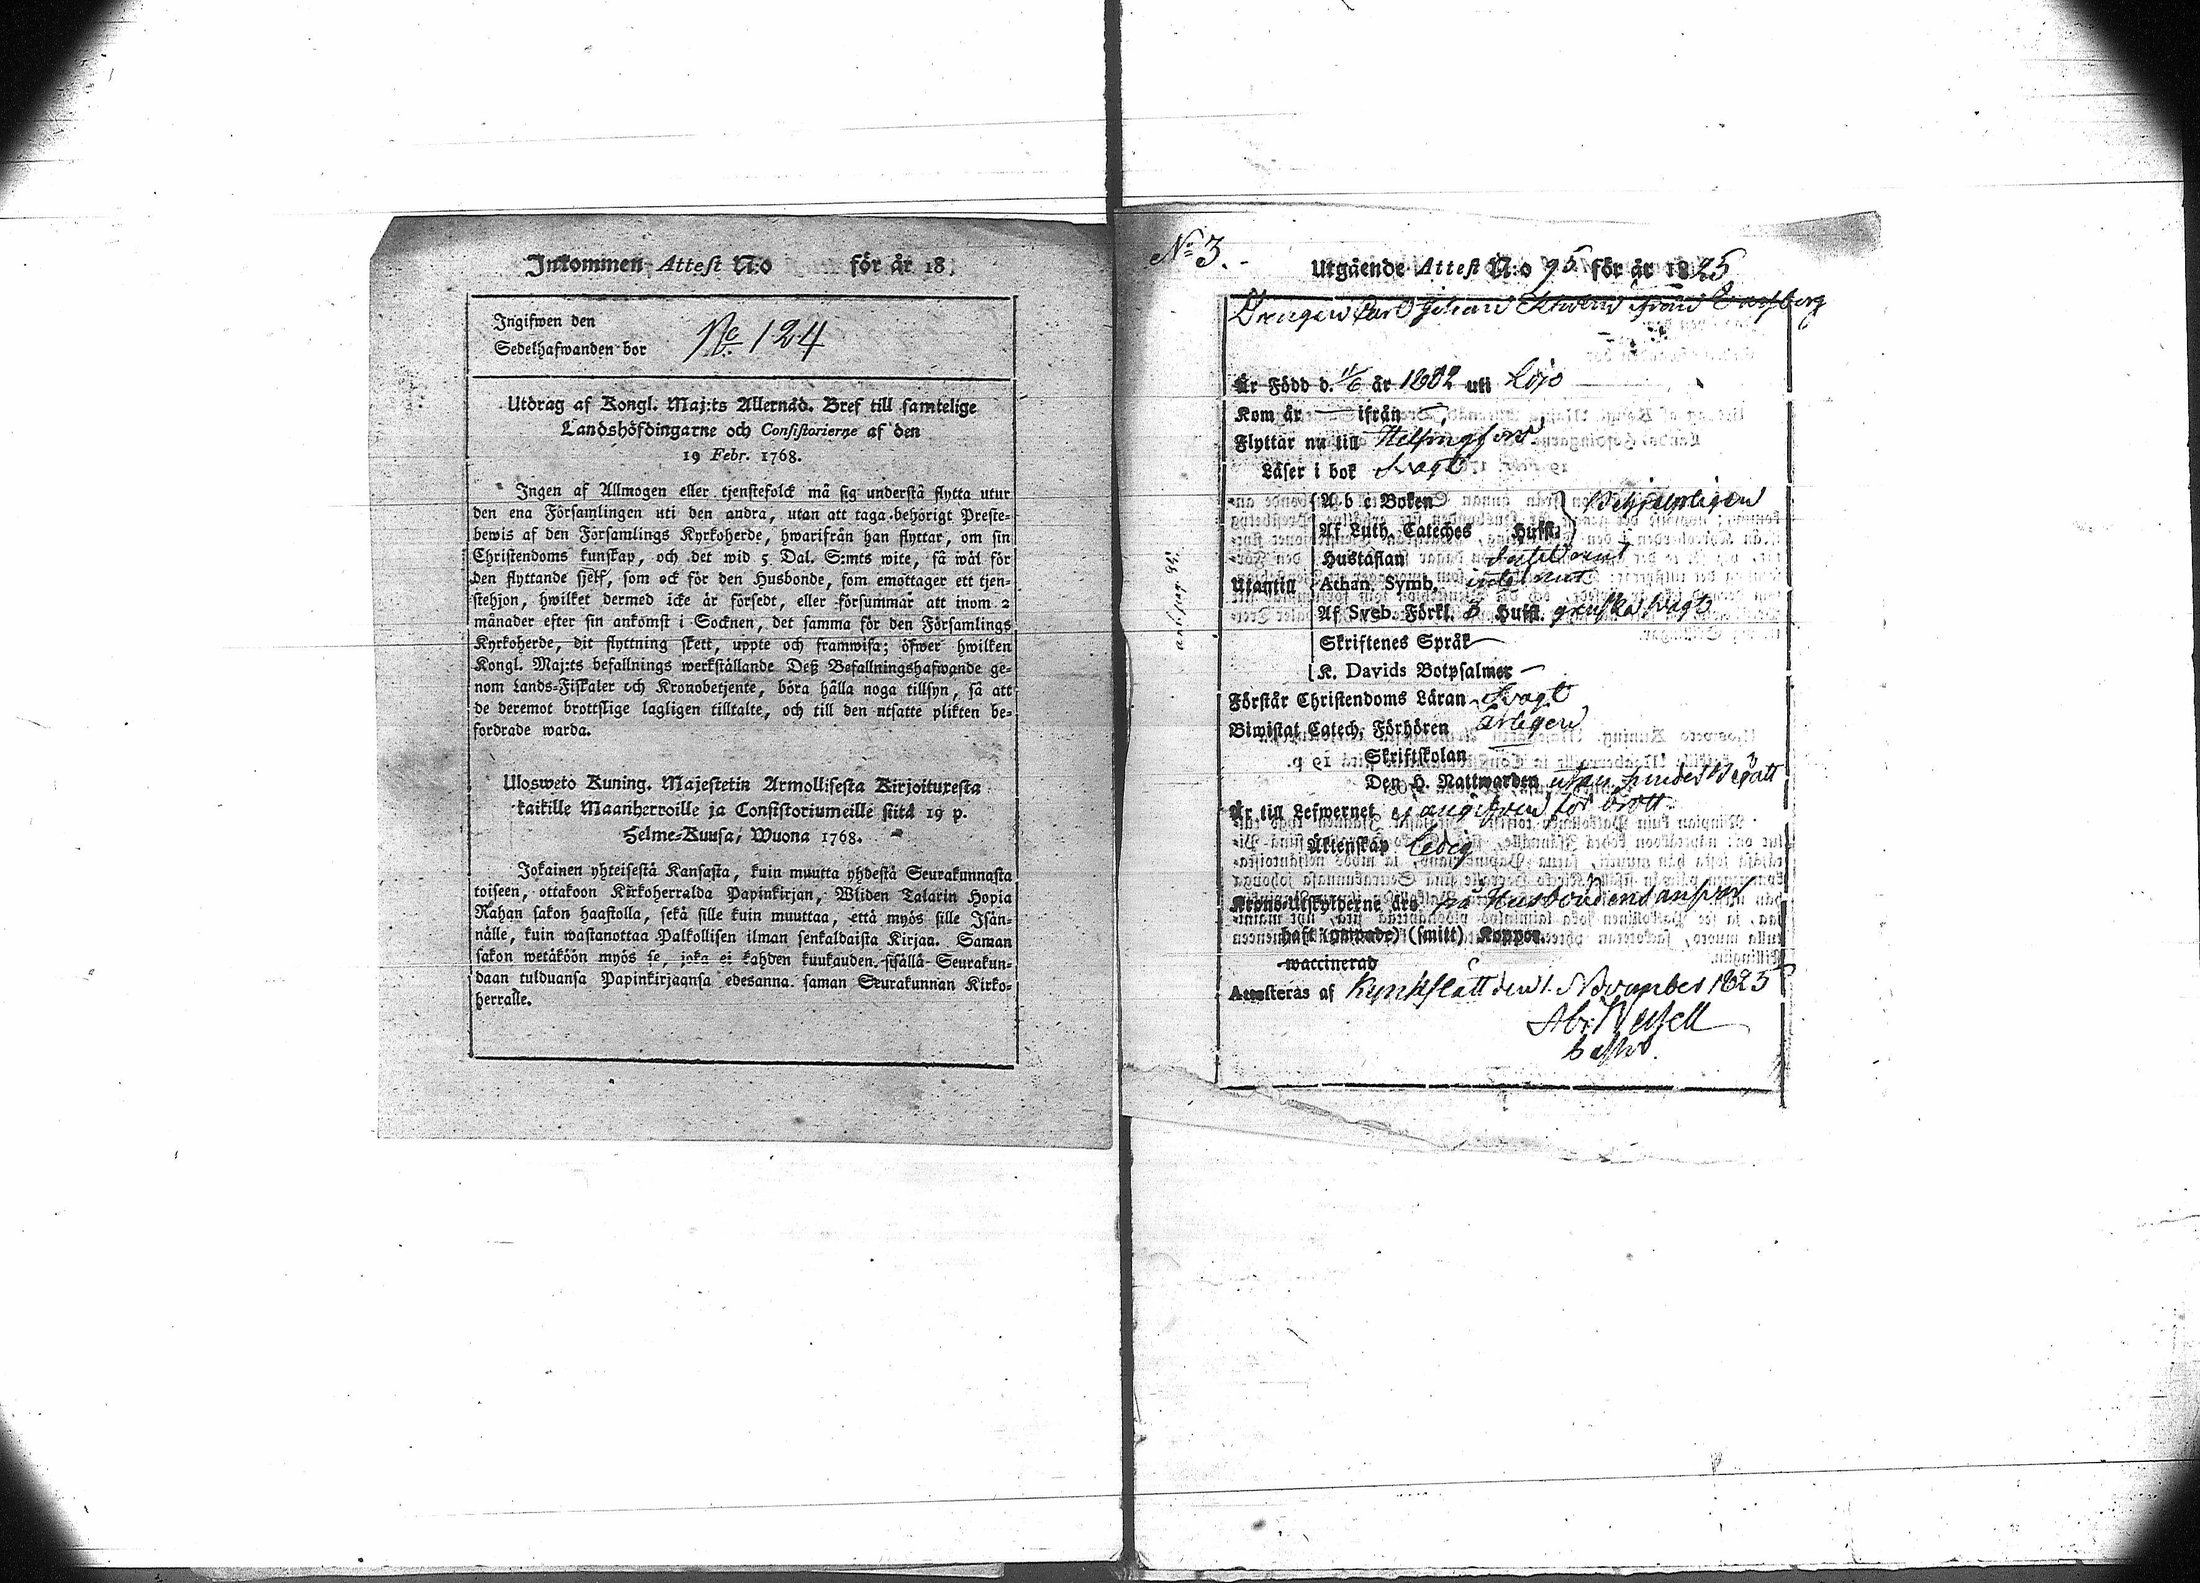 Inkommen Attest N:o för år 18
Ingifwen den
Sedelhafwanden bor
No 124
Utdrag af Kongl. Maj:ts Allernåd. Bref till samtelige
Landshöfdingarne och Consistorierne af den
19 Febr. 1768.
Ingen af Allmogen eller tjenstefolck må sig understå flytta utur
den ena Församlingen uti den andra, utan att taga behörigt Preste-
bewis af den Församlings Kyrkoherde, hwarifrån han flyttar, om sin
Christendoms kunskap, och det wid 5 Dal. S:mts wite, så wäl för
den flyttande sjelf, som ock för den Husbonde, som emottager ett tjen-
stehjon, hwilket dermed icke är försedt, eller försummar att inom 2
månader efter sin ankomst i Socknen, det samma för den Församlings
Kyrkoherde, dit flyttning skett, uppte och framwisa; öfwer hwilken
Kongl. Maj:ts befallnings werkställande Deß Befallningshafwande ge-
nom Lands-Fiskaler och Kronobetjente, böra hålla noga tillsyn, så att
de deremot brottslige lagligen tilltalte, och till den utsatte plikten be-
fordrade warda.
Ulosweto Kuning. Majestetin Armollisesta Kirjoituxesta
kaikille Maanherroille ja Consistoriumeille siitä 19 p.
Helme-Kuusa, Wuona 1768.
Jokainen yhteisestä Kansasta, kuin muutta yhdestä Seurakunnasta
toiseen, ottakoon Kirkoherralda Papinkirjan, Wliden Talarin Hopia
Rahan sakon haastolla, sekä sille kuin muuttaa, että myös sille Isän-
nälle, kuin wastanottaa Palkollisen ilman senkaldaista Kirjaa. Saman
sakon wetäköön myös se, joka ei kahden kuukauden sisällä Seurakun-
daan tulduansa Papinkirjaansa edesanna saman Seurakunnan Kirko-
herralle.
No 3.
Utgående Attest N:o 95 för år 1825
Drengen Carl Johan från
Är Född d. 11/6 år 1802 uti Lojo
Kom år — ifrån —
Flyttar nu till Helsingfors
Läser i bok svagt
A b c Boken
Af Luth. Cateches Hufst.
Hustaflan intet
Utantill Athan. Symb. intet
Af Sveb. Förkl. 3 Hufst. ganska svagt
Skriftenes Språk —
K. Davids Botpsalmer —
Förstår Christendoms Läran svagt
Biwistat Catech. Förhören årligen
Skriftskolan —
Den H. Nattwarden utan hinder
Är till Lefwernet ej angifven för brott.
Äktenskap ledig
Krono-Utskylderne års på Husbondens ansvar
haft (ympade) (smitt) Koppor.
waccinerad
Attesteras af Kyrkslätt den 1. November 1825